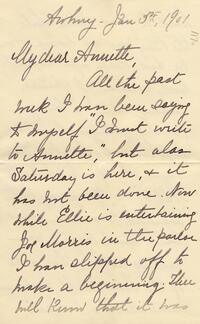 Jan 5th, 1901
My dear Annette,
All the past
week I have been saying
to myself "I must write
to Annette," but alas
Saturday is here, & it
has not been done. Now
while Ellie is entertaining
Joe Morris in the parlor
I have slipped off to
make a beginning. Then
will know that it was